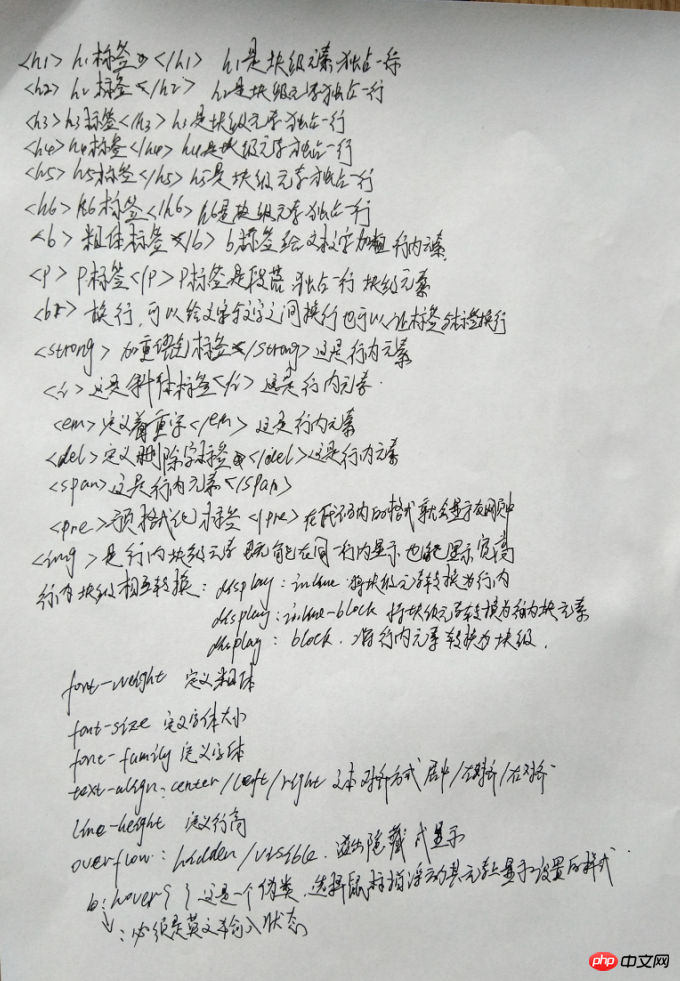 <h1> h1标签</h1> h1是块级元素 独占一行
<h2> h2标签</h2> h2是块级元素独占一行
<h3> h3标签</h3> h3是块级元素独占一行
<h4> h4标签</h4> h4是块级元素独占一行
<h5> h5标签</h5> h5是块级元素独占一行
<h6> h6标签</h6> h6是块级元素独占一行
<b> 粗体标签</b> b标签给文字加粗 行内元素
<p> p标签</p> p标签是段落 独占一行 块级元素
<br> 换行,可以给文字与文字之间换行也可以让标签与标签换行
<strong> 加重语气标签</strong> 这是行内元素
<i> 这是斜体标签</i> 这是行内元素.
<em> 定义着重字</em> 这是行内元素
<del> 定义删除字标签</del> 这是行内元素
<span> 这是行内元素</span>
<pre> 预格式化标签</pre> 在代码内的格式就会显示在网页中
<img> 是行内块级元素 既能在同一行内显示也能显示宽高
行内块级相互转换: display: inline 将块级元素转换为行内
display: inline-block 将块级元素转换为行内块元素
display: block. 将行内元素转换为块级.
font-weight 定义粗体
font-size 定义字体大小
font-family 定义字体
text-align: center/left/right 文本对齐方式 居中/左对齐/右对齐
line-height 定义行高
overflow: hidden/visible. 溢出隐藏或显示
b:hover{ } 这是一个伪类,选择鼠标指浮动其元素上显示设置的样式.
: 必须是英文输入状态
php 中文网